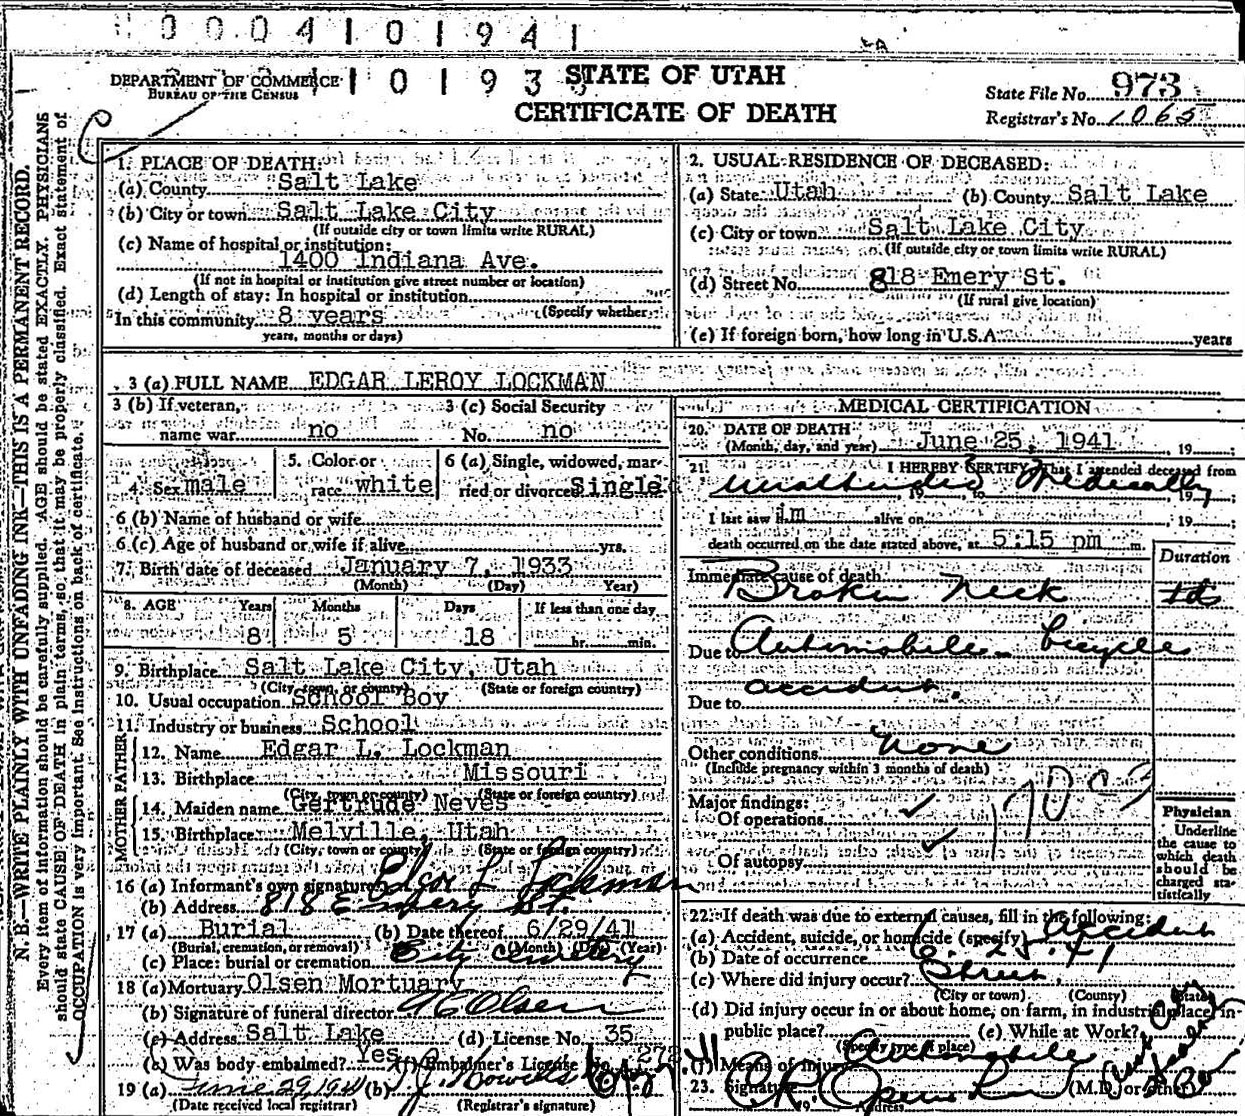 0 0 0 4 1 0 1 9 4 1
DEPARTMENT OF COMMERCE
BUREAU OF THE CENSUS
1 0 1 9 3
STATE OF UTAH
CERTIFICATE OF DEATH
State File No. 973
Registrar's No. 1065
N. B.—WRITE PLAINLY WITH UNFADING INK—THIS IS A PERMANENT RECORD.
Every item of information should be carefully supplied. AGE should be stated EXACTLY. PHYSICIANS
should state CAUSE OF DEATH in plain terms, so that it may be properly classified. Exact statement of
OCCUPATION is very important. See instructions on back of certificate.
1. PLACE OF DEATH:
(a) County Salt Lake
(b) City or town Salt Lake City
(If outside city or town limits write RURAL)
(c) Name of hospital or institution:
1400 Indiana Ave.
(If not in hospital or institution give street number or location)
(d) Length of stay: In hospital or institution
(Specify whether
In this community 8 years
years, months or days)
2. USUAL RESIDENCE OF DECEASED:
(a) State Utah (b) County Salt Lake
(c) City or town Salt Lake City
(If outside city or town limits write RURAL)
(d) Street No. 818 Emery St.
(If rural give location)
(e) If foreign born, how long in U.S.A. years
3 (a) FULL NAME EDGAR LEROY LOCKMAN
3 (b) If veteran,
name war no
3 (c) Social Security
No. no
4. Sex male
5. Color or
race white
6 (a) Single, widowed, mar-
ried or divorced Single
6 (b) Name of husband or wife
6 (c) Age of husband or wife if alive yrs.
7. Birth date of deceased January 7, 1933
(Month) (Day) Year)
8. AGE Years Months Days If less than one day
8 5 18 hr. min.
9. Birthplace Salt Lake City, Utah
(City, town, or county) (State or foreign country)
10. Usual occupation School Boy
11. Industry or business School
FATHER
12. Name Edgar L. Lockman
13. Birthplace Missouri
(City, town or county) (State or foreign country)
MOTHER
14. Maiden name Gertrude Neves
15. Birthplace Melville, Utah
(City, town or county) (State or foreign country)
16 (a) Informant's own signature Edgar L Lockman
(b) Address 818 Emery St.
17 (a) Burial (b) Date thereof 6/29/41
(Burial, cremation, or removal) (Month) (Day) (Year)
(c) Place: burial or cremation City Cemetery
18 (a) Mortuary Olsen Mortuary
(b) Signature of funeral director A E Olsen
(c) Address Salt Lake (d) License No. 35
(e) Was body embalmed? Yes (f) Embalmer's License No. 272
19 (a) June 29, 1941 (b)
(Date received local registrar) (Registrar's signature)
MEDICAL CERTIFICATION
20. DATE OF DEATH
(Month, day, and year) June 25, 1941, 19
21. I HEREBY CERTIFY, That I attended deceased from
unattended Medically
19 to 19
I last saw im alive on , 19
death occurred on the date stated above, at 5:15 pm m.
Duration
Immediate cause of death
Broken Neck
Due to Automobile - bicycle
accident.
Due to
Other conditions None
(Include pregnancy within 3 months of death)
Major findings:
Of operations
Of autopsy
Physician
Underline
the cause to
which death
should be
charged sta-
tistically
22. If death was due to external causes, fill in the following:
(a) Accident, suicide, or homicide (specify) Accident
(b) Date of occurrence 6-25-41
(c) Where did injury occur? Street
(City or town) (County) (State)
(d) Did injury occur in or about home, on farm, in industrial place, in
public place? (e) While at Work?
(Specify type of place)
(f) Means of injury Automobile
23. Signature (M.D. or other)
19 Address